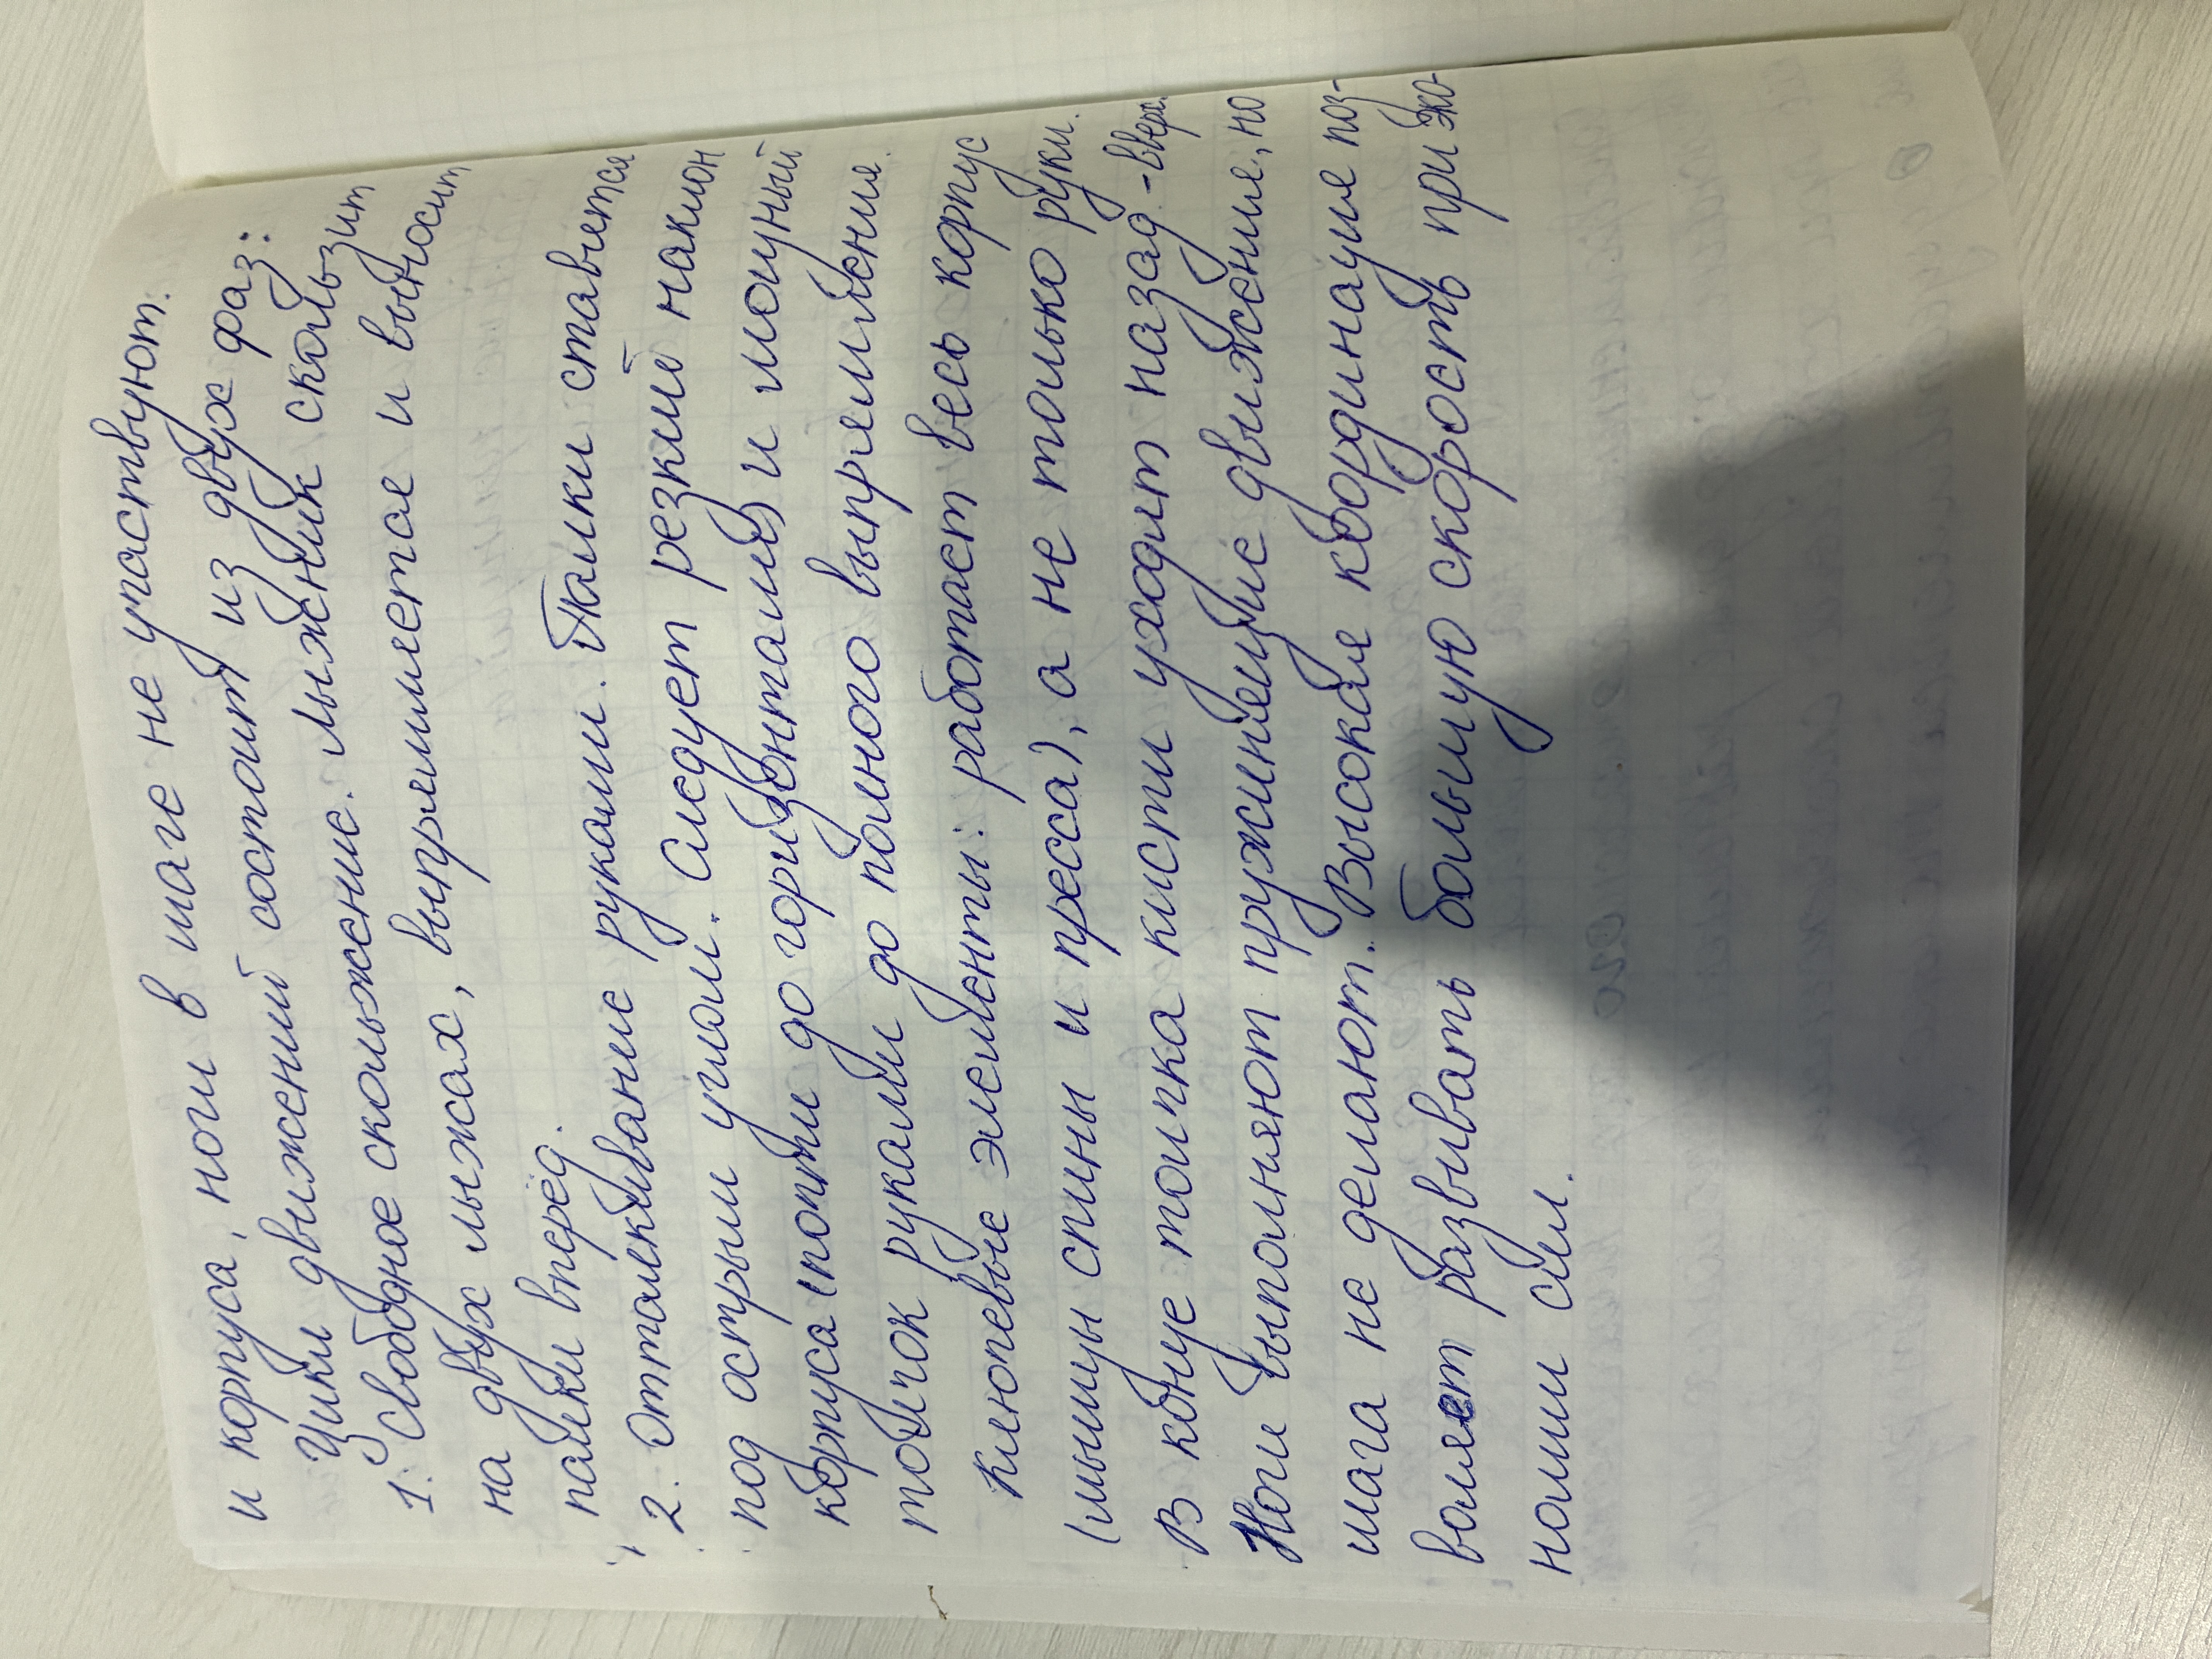 и корпуса, ноги в шаге не участвуют.
Цикл движений состоит из двух фаз:
1. Свободное скольжение. Лыжник скользит
на двух лыжах, выпрямляется и выносит
палки вперёд.
2. Отталкивание руками. Палки ставятся
под острым углом. Следует резкий наклон
корпуса (почти до горизонтали) и мощный
толчок руками до полного выпрямления.
Ключевые элементы: работает весь корпус
(мышцы спины и пресса), а не только руки.
В конце толчка кисти уходят назад-вверх.
Ноги выполняют пружинящие движения, но
шага не делают. Высокая координация поз-
воляет развивать большую скорость при эко-
номии сил.